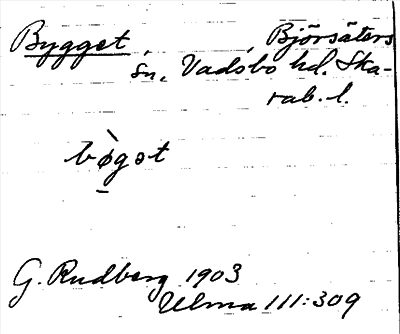 Bygget, Björsäters
sn, Vadsbo hd. Ska-
rab. l.
bø̀gət
G. Rudberg 1903
Ulma 111:309